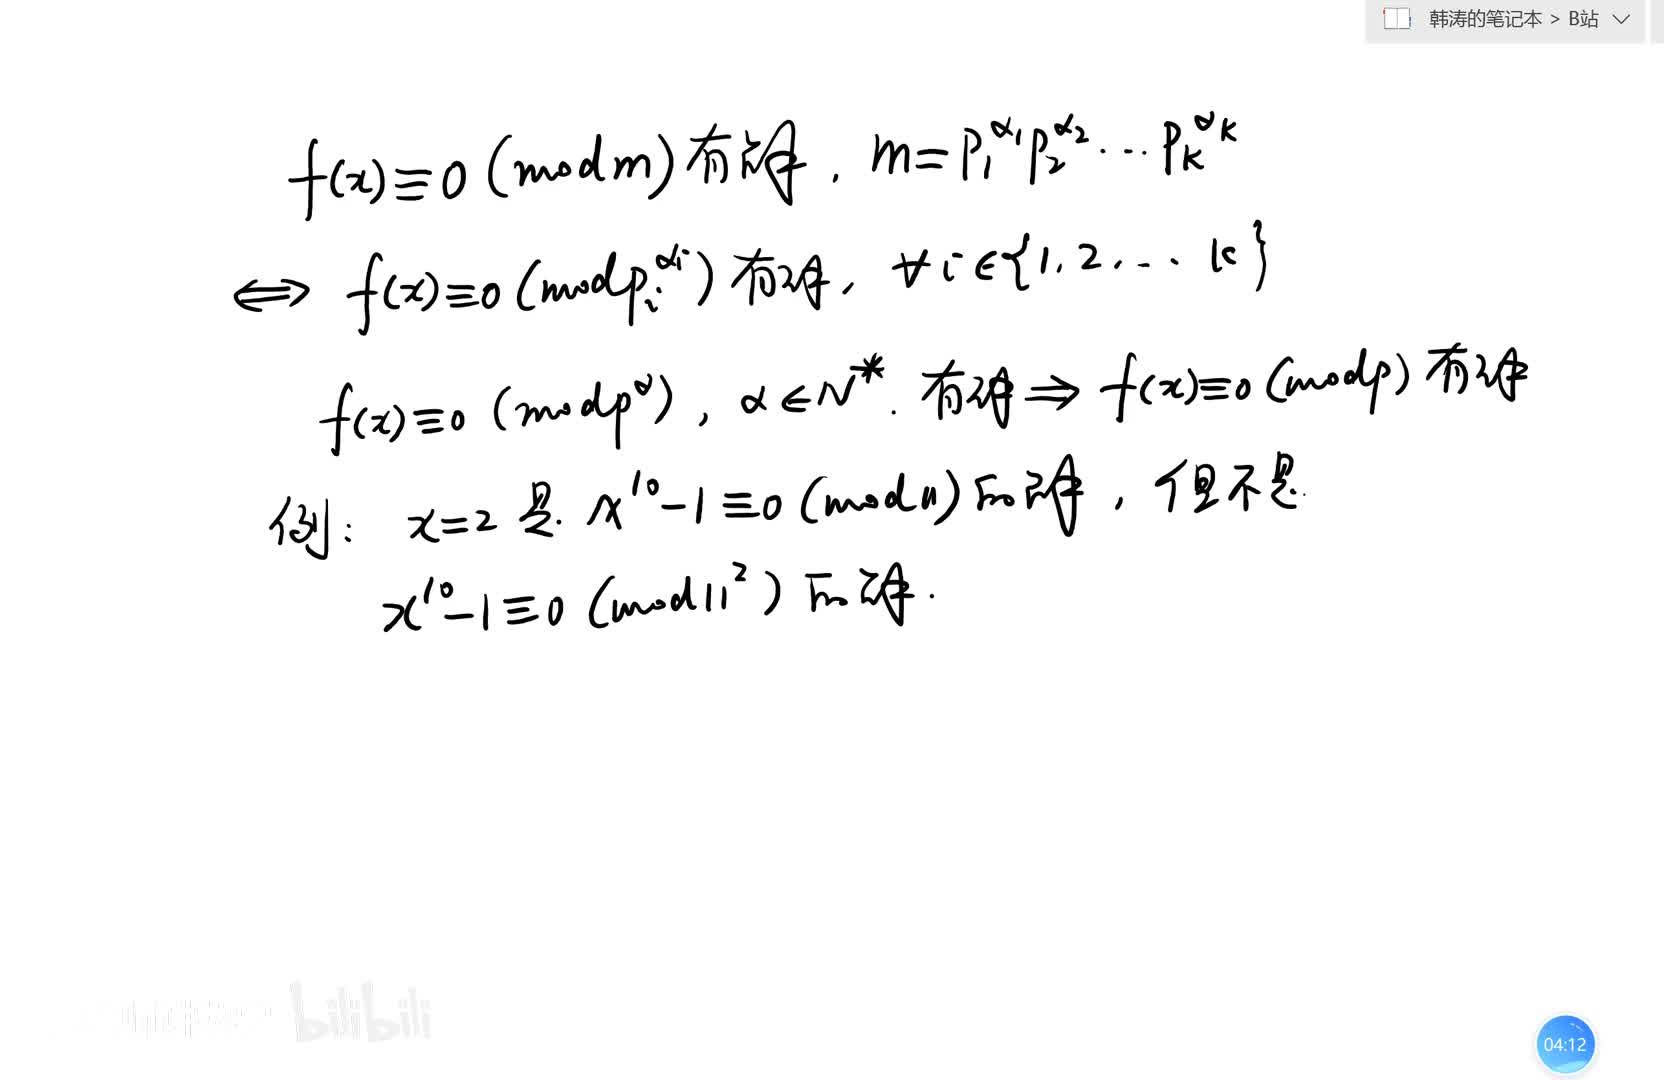 韩涛的笔记本 > B站
f(x)≡0 (mod m) 有解, m=p₁^α₁ p₂^α₂ ⋯ p_k^α_k
⟺ f(x)≡0 (mod p_i^α_i) 有解, ∀i∈{1,2,⋯ k}
f(x)≡0 (mod p^α), α∈N*. 有解 ⇒ f(x)≡0 (mod p) 有解
例: x=2 是 x¹⁰-1≡0 (mod 11) 的解, 但不是
x¹⁰-1≡0 (mod 11²) 的解.
bilibili
04:12